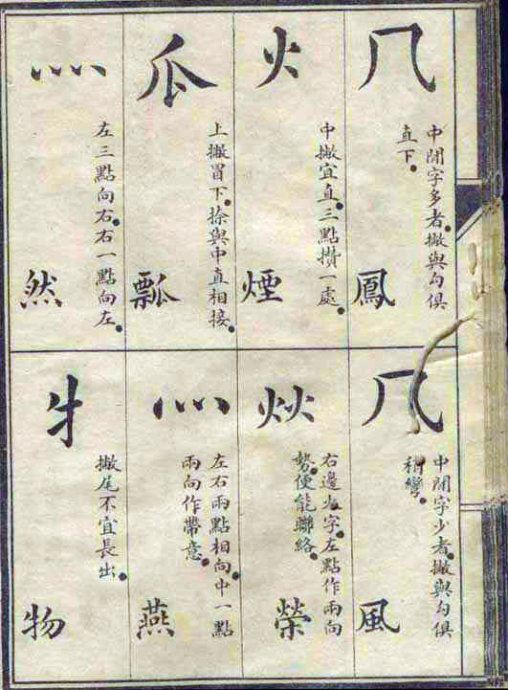 几
中閒字多者。撇與勾俱
直下。
鳳
火
中撇宜直。三點攢一處。
煙
瓜
上撇冒下。捺與中直相接。
瓢
灬
左三點向右。右一點向左。
然
几
中閒字少者。撇與勾俱
稍彎。
風
炏
右邊火字。左點作兩向
勢。便能聯絡。
榮
灬
左右兩點相向。中一點
兩向作帶意。
燕
牛
撇尾不宜長出。
物